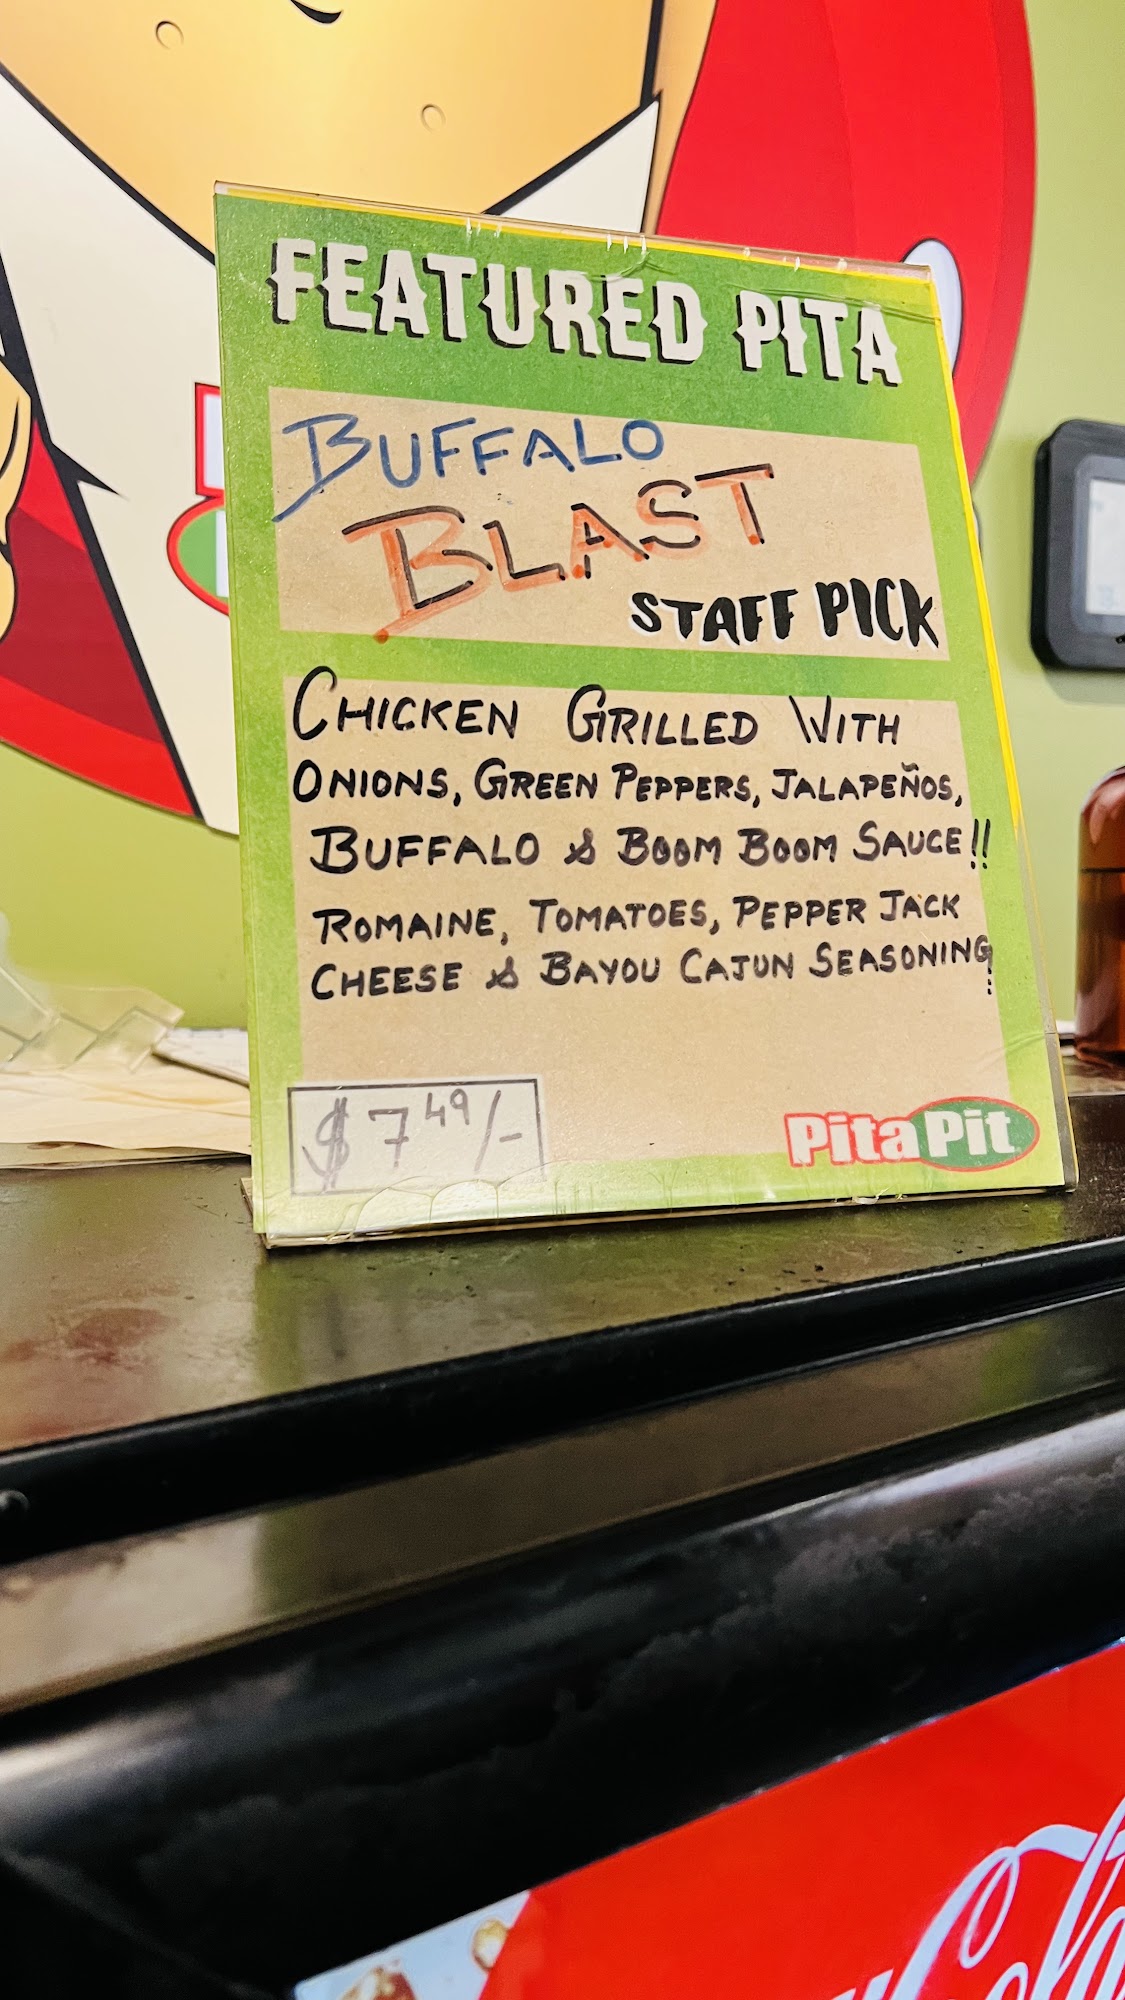 FEATURED PITA
BUFFALO
BLAST
STAFF PICK
CHICKEN GRILLED WITH
ONIONS, GREEN PEPPERS, JALAPEÑOS,
BUFFALO & BOOM BOOM SAUCE!!
ROMAINE, TOMATOES, PEPPER JACK
CHEESE & BAYOU CAJUN SEASONING!!
$7 49/-
Pita Pit